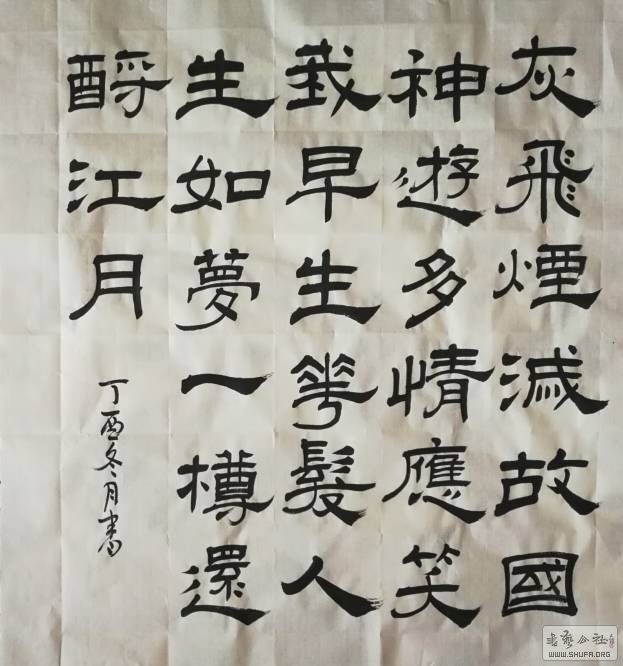 灰飛煙滅故國
神遊多情應笑
我早生華髮人
生如夢一樽還
酹江月
丁酉冬月書
书艺公社
WWW.SHUFA.ORG